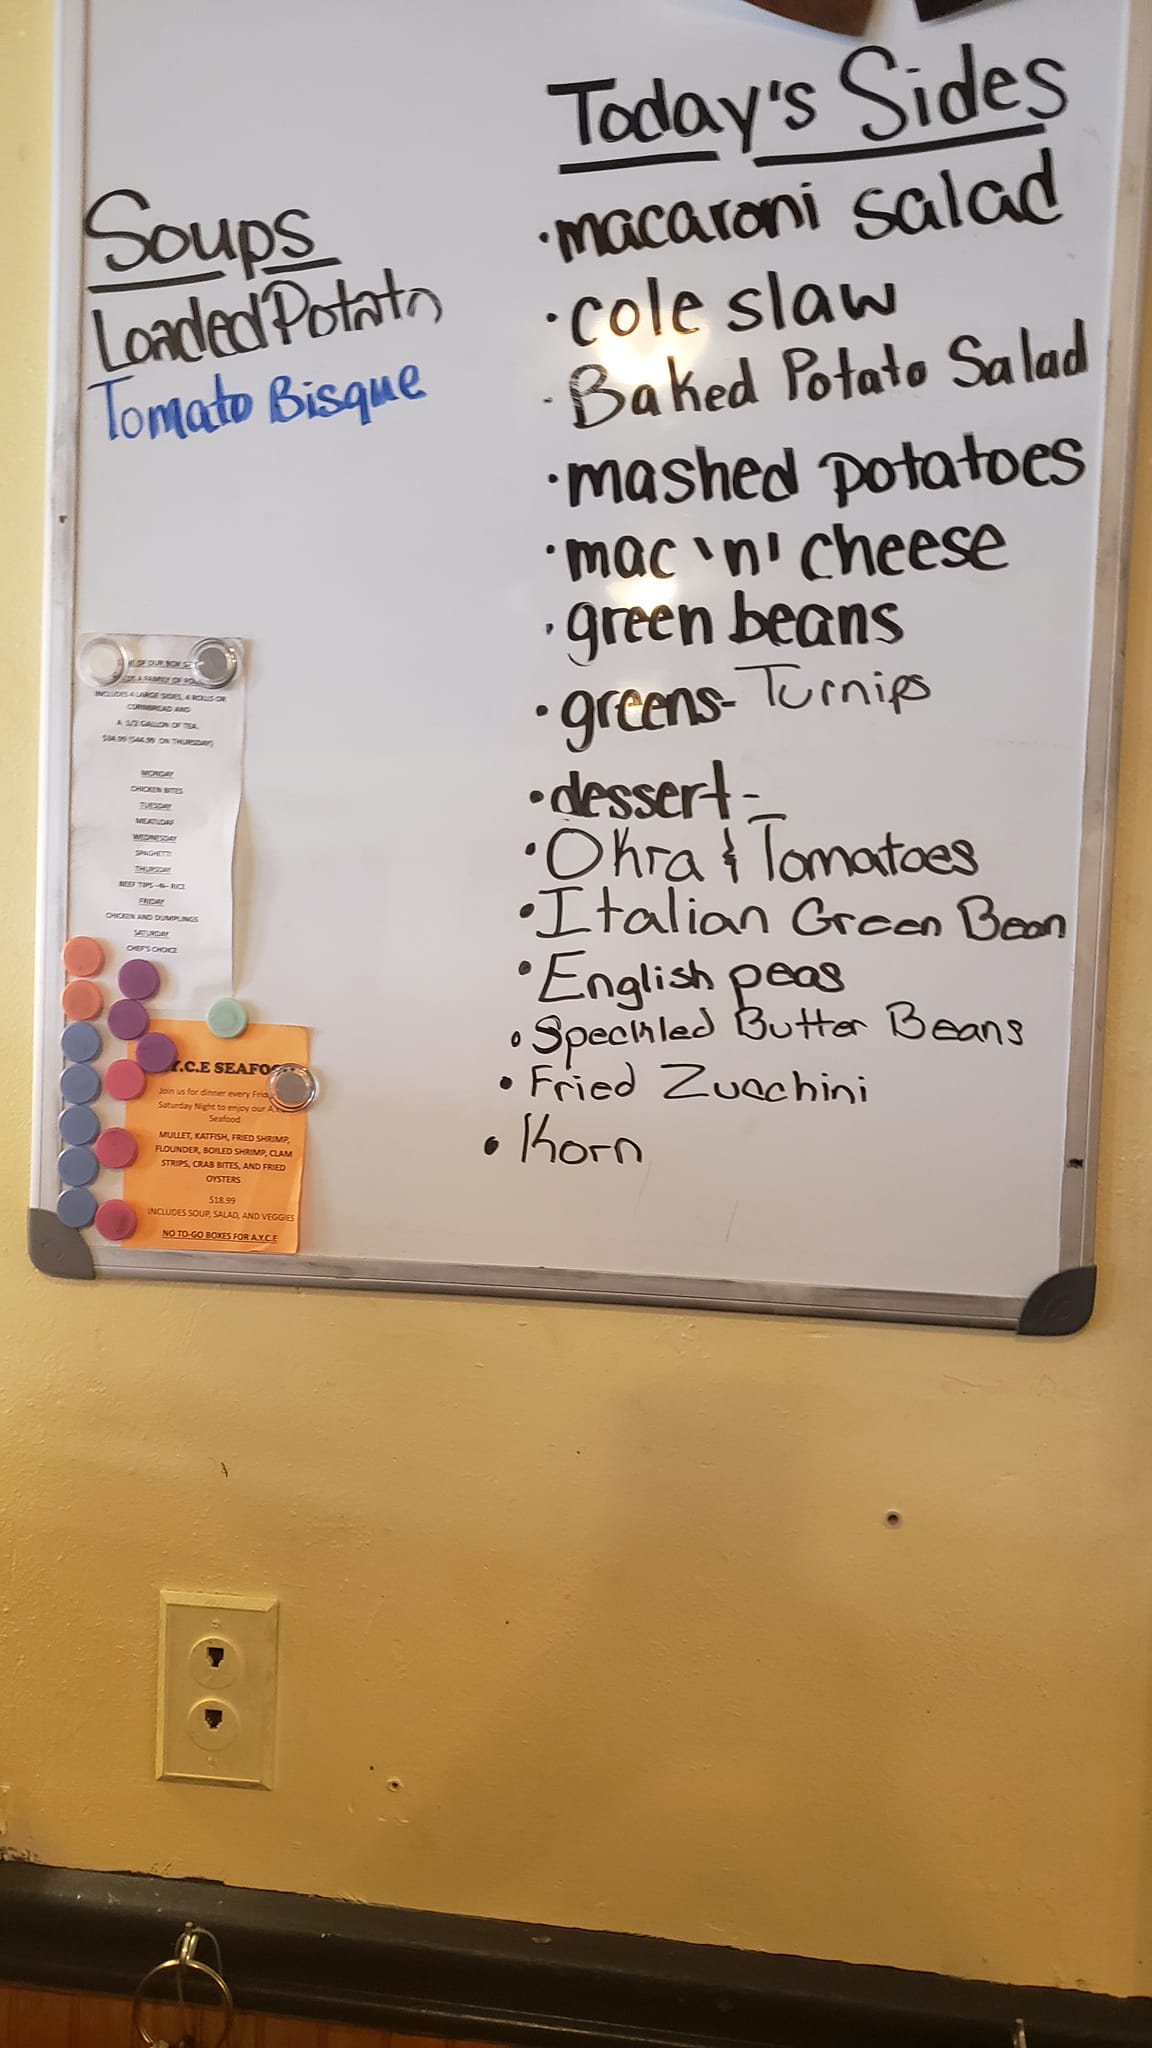 Today's Sides
· macaroni salad
· cole slaw
· Baked Potato Salad
· mashed potatoes
· mac 'n' cheese
· green beans
· greens- Turnips
· dessert-
· Okra & Tomatoes
· Italian Green Bean
· English peas
· Speckled Butter Beans
· Fried Zucchini
· Korn
Soups
Loaded Potato
Tomato Bisque
OF OUR
A FAMILY OF
INCLUDES 4 LARGE SIDES, 4 ROLLS OR
CORNBREAD AND
A 1/2 GALLON OF TEA.
$34.99 ($44.99 ON THURSDAY)
MONDAY
CHICKEN BITES
TUESDAY
MEATLOAF
WEDNESDAY
SPAGHETTI
THURSDAY
BEEF TIPS -N- RICE
FRIDAY
CHICKEN AND DUMPLINGS
SATURDAY
CHEF'S CHOICE
Y.C.E SEAFO
Join us for dinner every Frid
Saturday Night to enjoy our A.Y
Seafood
MULLET, KATFISH, FRIED SHRIMP,
FLOUNDER, BOILED SHRIMP, CLAM
STRIPS, CRAB BITES, AND FRIED
OYSTERS
$18.99
INCLUDES SOUP, SALAD, AND VEGGIES
NO TO-GO BOXES FOR A.Y.C.E